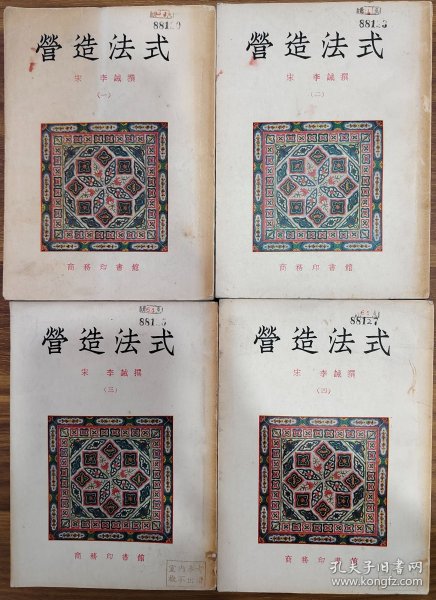 營造法式
宋 李誡撰
(一)
商務印書館
營造法式
宋 李誡撰
(二)
商務印書館
營造法式
宋 李誡撰
(三)
商務印書館
營造法式
宋 李誡撰
(四)
商務印書館
孔夫子旧书网
kongfz.com